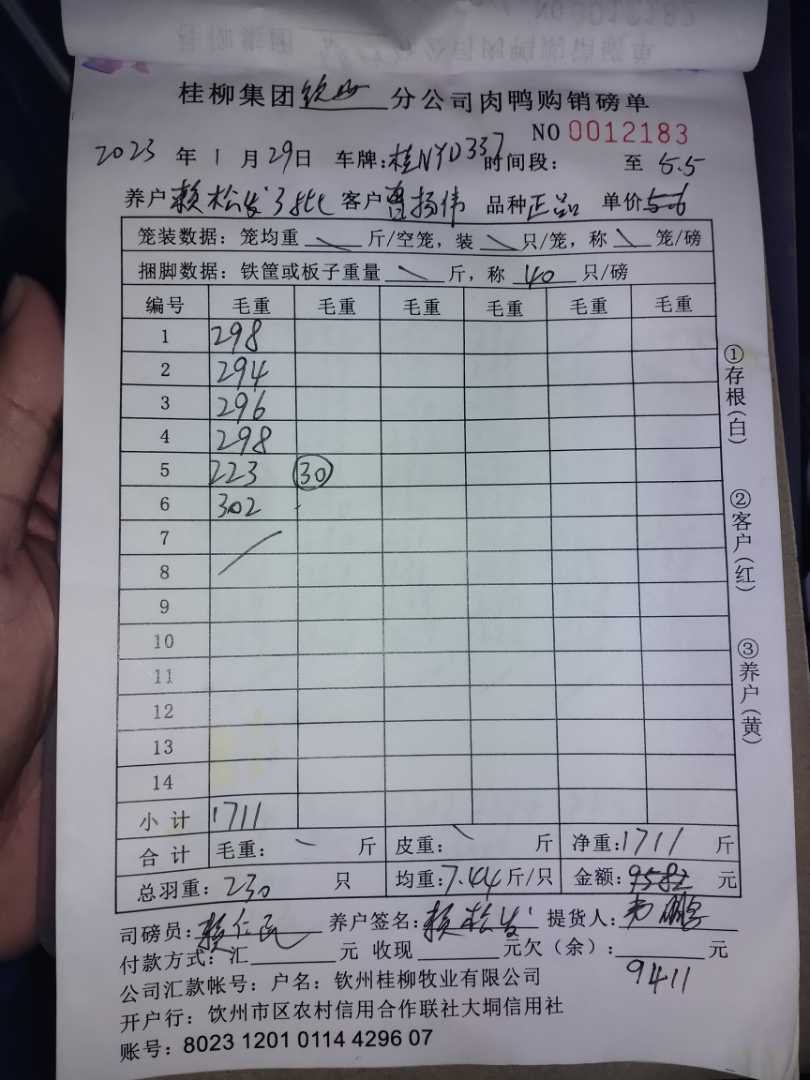 桂柳集团钦州分公司肉鸭购销磅单
NO 0012183
2023年1月29日 车牌:桂NYD337 时间段: 至 5.5
养户赖松发3批 客户曾扬伟 品种正品 单价5.6
笼装数据: 笼均重 斤/空笼, 装 只/笼, 称 笼/磅
捆脚数据: 铁筐或板子重量 斤, 称 40 只/磅
编号 毛重 毛重 毛重 毛重 毛重 毛重
1 298
2 294
3 296
4 298
5 223 30
6 302
7
8
9
10
11
12
13
14
小计 1711
合计 毛重: 斤 皮重: 斤 净重:1711 斤
总羽重: 230 只 均重:7.44斤/只 金额:9582 元
司磅员: 赖仁 养户签名: 赖松发 提货人: 鹏
付款方式: 汇 元 收现 元欠(余): 元
9411
公司汇款帐号: 户名: 钦州桂柳牧业有限公司
开户行: 饮州市区农村信用合作联社大垌信用社
账号: 8023 1201 0114 4296 07
①存根(白)
②客户(红)
③养户(黄)